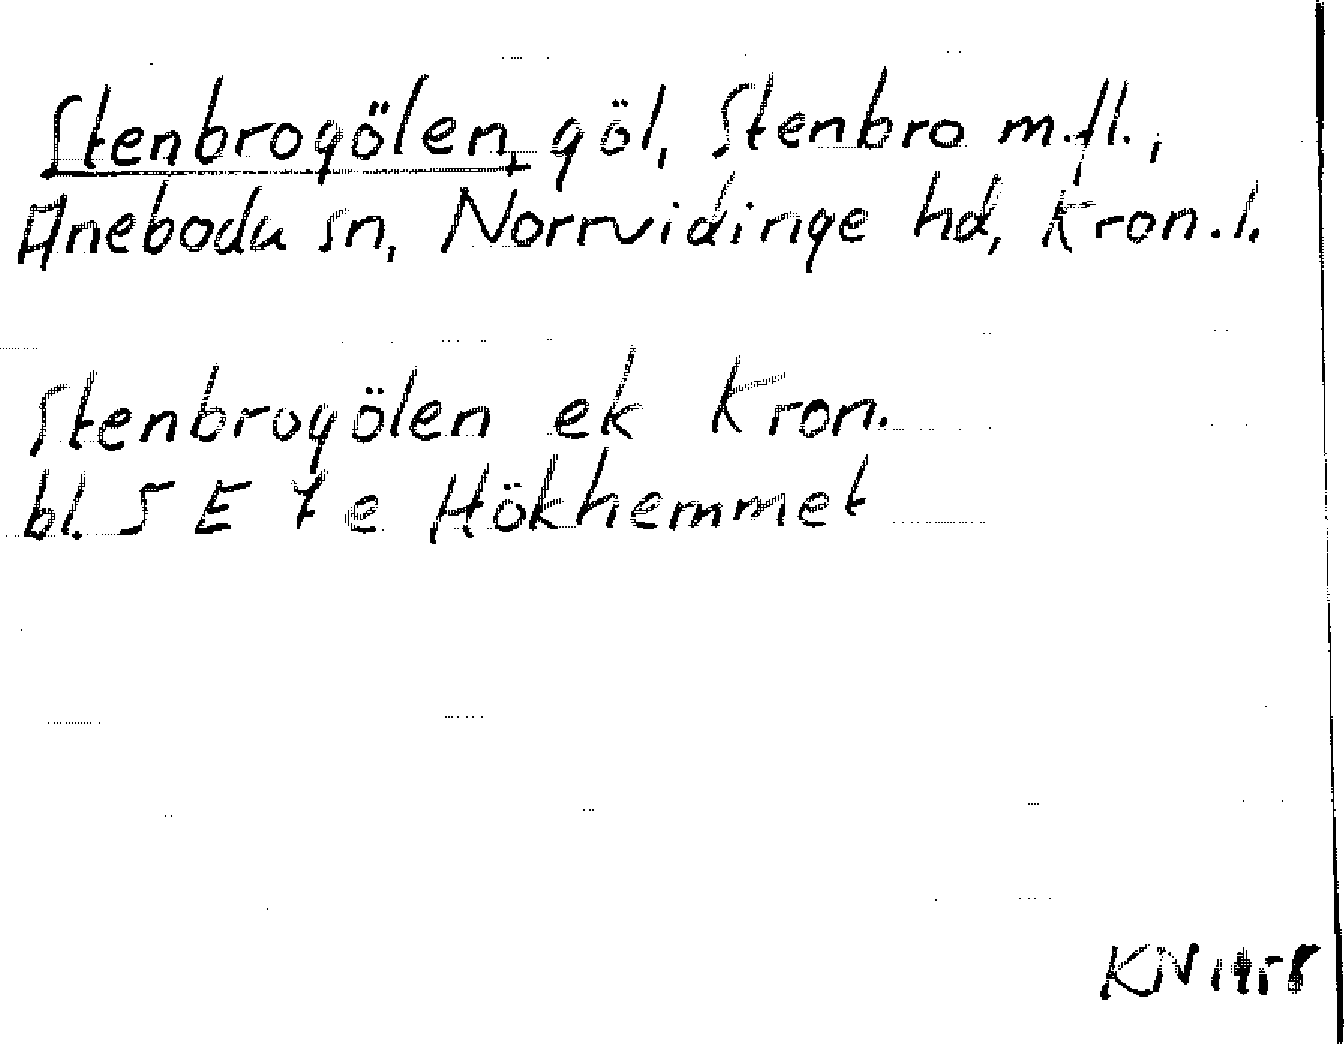 Stenbrogölen, göl, Stenbro m.fl.,
Aneboda sn, Norrvidinge hd, Kron. l.
Stenbrogölen ek Kron.
bl. 5 E 7 e Hökhemmet
KN 1958